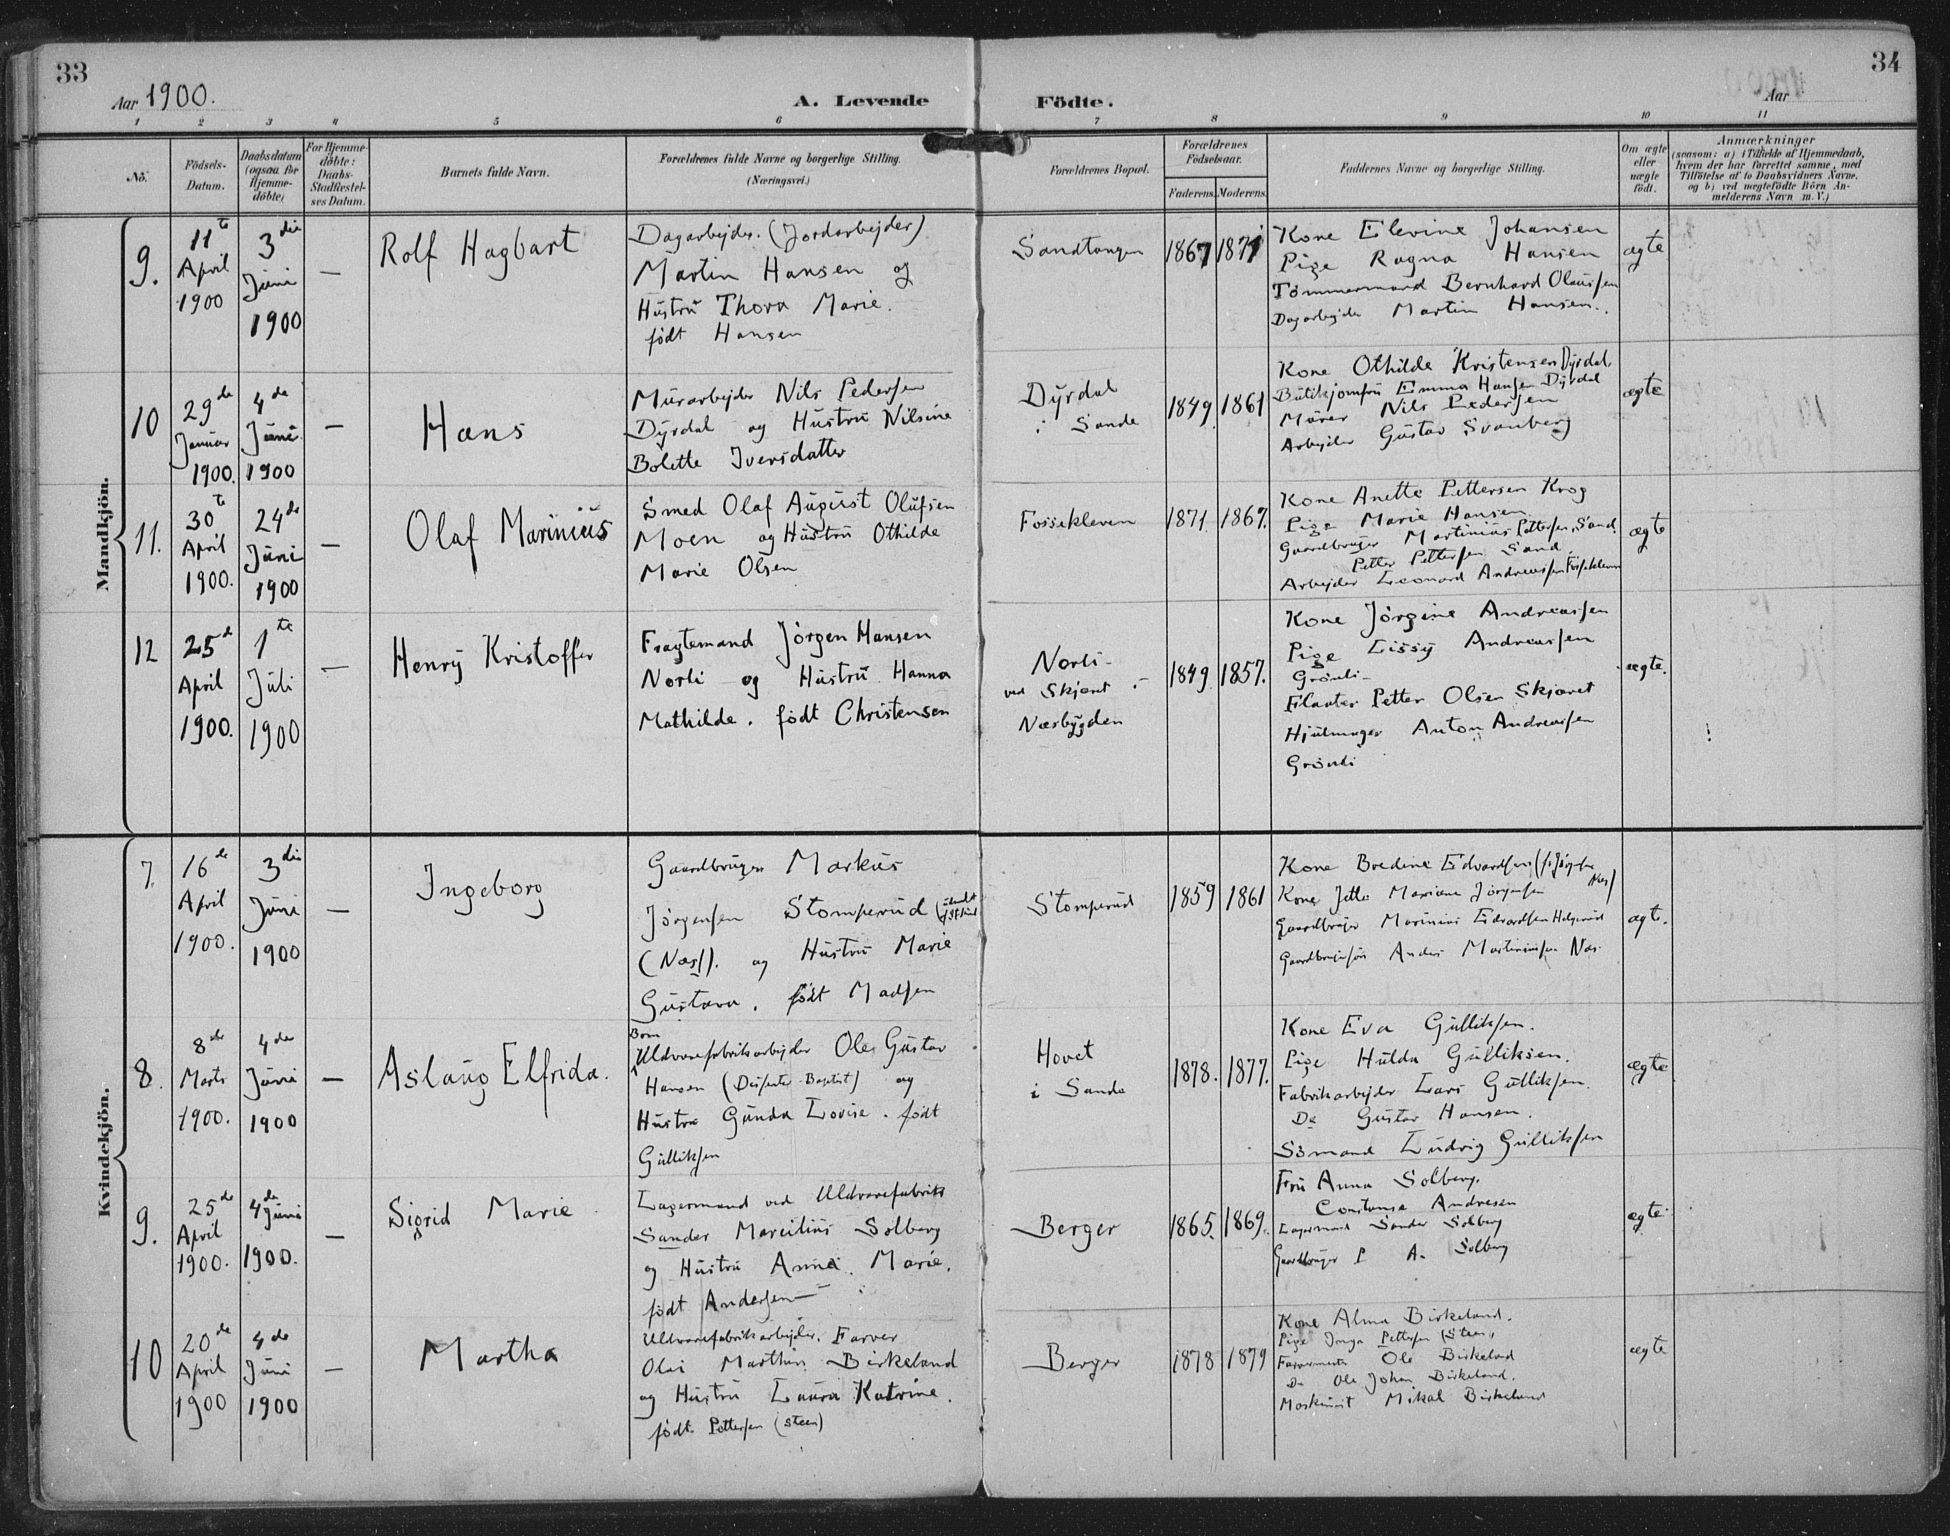 33
34
Aar 1900.
A. Levende
Födte.
Aar
1
2
3
4
5
6
7
8
9
10
11
No.
Födsels-
Datum.
Daabsdatum
(ogsaa för
Hjemme-
döbte)
For Hjemme-
döbte:
Daabs-
Stadfæstel-
ses Datum.
Barnets fulde Navn.
Forældrenes fulde Navne og borgerlige Stilling.
(Næringsvei.)
Forældrenes Bopæl.
Forældrenes
Födselsaar.
Faderens.
Moderens.
Faddernes Navne og borgerlige Stilling.
Om ægte
eller
uægte
födt.
Anmærkninger
(saasom: a) i Tilfælde af Hjemmedaab,
hvem der har forrettet samme, med
Tilföielse af to Daabsvidners Navne,
og b) ved uægtefödte Börn An-
melderens Navn m. V.)
Mandkjön.
9.
11te
April
1900
3die
Juni
1900
—
Rolf Hagbart
Dagarbejder. (Jordarbejder)
Martin Hansen og
Hustru Thora Marie.
født Hansen
Sandtangen
1867
1871
Kone Elevine Johansen
Pige Ragna Hansen
Tømmermand Bernhard Olaussen
Dagarbejder Martin Hansen.
ægte
10
29de
Januar
1900.
4de
Juni
1900
—
Hans
Murarbejder Nils Pedersen
Dyrdal og Hustru Nilsine
Bolette Iversdatter
Dyrdal
i Sande
1849
1861
Kone Othilde Kristensen Dyrdal
Butikjomfru Emma Hansen Dyrdal
Murer Nils Pedersen
Arbejder Gustav Svanberg
ægte
11.
30te
April
1900.
24de
Juni
1900
—
Olaf Marinius
Smed Olaf August Olufsen
Moen og Hustru Othilde
Marie Olsen
Fossekleven
1871
1867.
Kone Anette Pettersen Krog
Pige Marie Hansen
Gaardbruger Martinius Pettersen, Sand.
Petter Pettersen Sand.
Arbejder Leonard Andreassen Fossekleven
ægte
12
25de
April
1900.
1te
Juli
1900
—
Henry Kristoffer
Fragtemand Jørgen Hansen
Norli og Hustru Hanna
Mathilde. født Christensen
Norli-
ved Skjæret i
Næsbygden
1849
1857.
Kone Jørgine Andreassen
Pige Lissy Andreassen
Grønli-
Fløuter Petter Olsen Skjæret
Hjulmager Anton Andreassen
Grønli
ægte.
Kvindekjön.
7.
16de
April
1900.
3die
Juni
1900
—
Ingeborg
Gaardbruger Markus
Jørgensen Stomperud
(Næss). og Hustru Marie
Gustava. født Madsen
Stomperud
1859
1861
Kone Bredine Edvardsen
Kone Jette Mariane Jørgensen
Gaardbruger Marinius Edvardsen Helgerud
Gaardbrugersøn Anders Martiniussen Næs
ægte.
8.
8de
Marts
1900.
4de
Juni
1900
—
Aslaug Elfrida.
Born
Uldvarefabrikarbejder Ole Gustav
Hansen (Dissenter-Baptist) og
Hustru Gunda Lovise. født
Gulliksen
Hovet
i Sande
1878.
1877.
Kone Eva Gulliksen.
Pige Hulda Gulliksen.
Fabrikarbejder Lars Gulliksen.
Do Gustav Hansen.
Sømand Ludvig Gulliksen
ægte
9.
25de
April
1900.
4de
Juni
1900.
—
Sigrid Marie
Lagermand ved Uldvarefabrik
Sander Marcilius Solberg
og Hustru Anna Marie.
født Andersen—
Berger
1865.
1869.
Fru Anna Solberg.
Constanse Andresen
Lagermand Sander Solberg
Gaardbruger P A. Solberg
ægte
10
20de
April
1900
4de
Juni
1900
—
Martha
Uldvarefabrikarbejder. Farver
Olai Marthin Birkeland
og Hustru Laura Katrine.
født Pettersen (Steen)
Berger
1878
1879
Kone Alma Birkeland.
Pige Inga Pettersen (Steen)
Farvermester Ole Birkeland
Do Ole Johan Birkeland.
Maskinist Mikal Birkeland
ægte